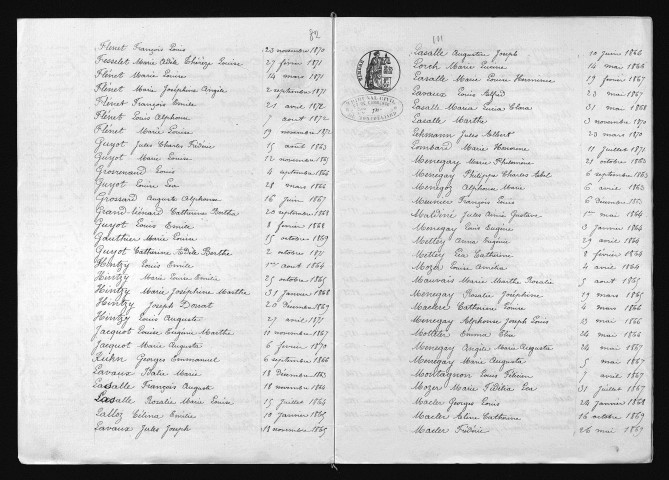 82
Flénet François Louis 23 novembre 1870
Fesselet Marie Adèle Thérèze Louise 27 févr 1871
Flénet Marie Louise 14 mars 1871
Flénet Marie Joséphine Angèle 2 septembre 1871
Flénet François Emile 21 avril 1872
Flénet Louis Alphonse 7 août 1872
Flénet Marie Louise 19 novembre 1872
Guyot Jules Charles Frédéric 15 août 1863
Guyot Marie Louise 12 novembre 1865
Grosrenaud Louis 4 septembre 1866
Guyot Louise Léa 28 mars 1866
Grossard Auguste Alphonse 16 juin 1867
Grand-liénard Catherine Bertha 20 septembre 1868
Guyot Louis Emile 8 février 1868
Gauthier Marie Louise 15 octobre 1869
Guyot Catherine Adèle Berthe 2 octobre
Hintzy Louis Emile 1er août 1864
Hintzy Marie Louise Emilie 25 octobre 1865
Hintzy Marie Joséphine Marthe 31 janvier 1868
Hintzy Joseph Donat 20 Décembre 1869
Hintzy Louis Auguste 27 avril 1871
Jacquot Louise Eugénie Marthe 11 novembre 1867
Jacquot Marie Auguste 6 février 1870
Kuhn Georges Emmanuel 6 septembre 1866
Lavaux Marie 18 Décembre 1863
Lassalle François Auguste 18 novembre 1864
Lassalle Rosalie Marie Louise 15 juillet 1864
Lalloz Célina Emilie 10 janvier 1865
Lavaux Jules Joseph 13 novembre 1865
Lasalle Augustin Joseph 10 juin 1866
Lorch Marie Lucine 14 mai 1866
Lasalle Marie Louise Hermance 19 février 1867
Lavaux Louis Alfred 23 mai 1867
Lasalle Maria Lucia Clara 31 mai 1868
Lasalle Marthe 3 novembre 1870
Lehmann Jules Albert 23 mars 1870
Lombard Marie Hermine 11 juillet 1871
Menegay Marie Philomène 21 octobre 1863
Menegay Philippe Charles Abel 6 septembre 1863
Menegoz Alphonse Marie 6 avril 1863
Meunier François Louis 6 Décembre 1863
Maldiné Jules Aimé Gustave 1er mai 1864
Menegay Louis Eugène 3 janvier 1864
Metley Anna Eugénie 29 avril 1864
Metley Léa Catherine 2 février 1864
Mozer Louise Amélia 4 avril 1864
Mauvais Marie Marthe Rosalie 5 août 1865
Menegay Rosalie Joséphine 19 mars 1865
Maclerc Catherine Louise 4 mars 1866
Menegay Alphonse Joseph Louis 13 mai 1866
Mettler Emma Elise 24 mai 1866
Menegay Angèle Marie Augusta 24 mai 1867
Menegay Marie Augusta 5 mai 1867
Montagnon Louis Félicien 7 avril 1867
Mozer Marie Léa 31 juillet 1867
Macler Georges Louis 24 janvier 1868
Macler Aline Catherine 16 octobre 1869
Macler Frédéric 26 mai 1869